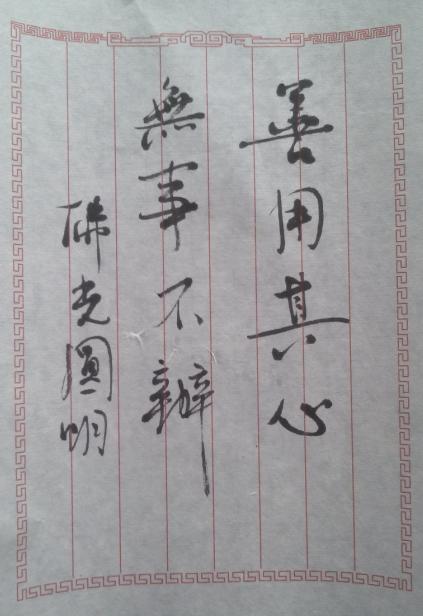 善用其心
無事不辦
佛光圓明